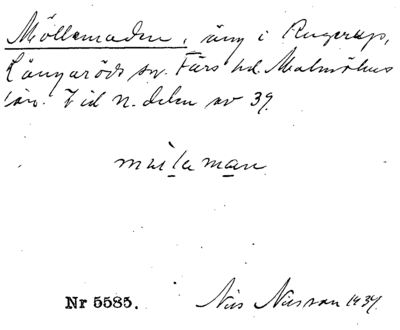 Möllemaden, äng i Ringerup,
Långaröds sn. Färs hd. Malmöhus
län. Vid n. delen av 39.
Nr 5585. Nils Nilsson 1937.